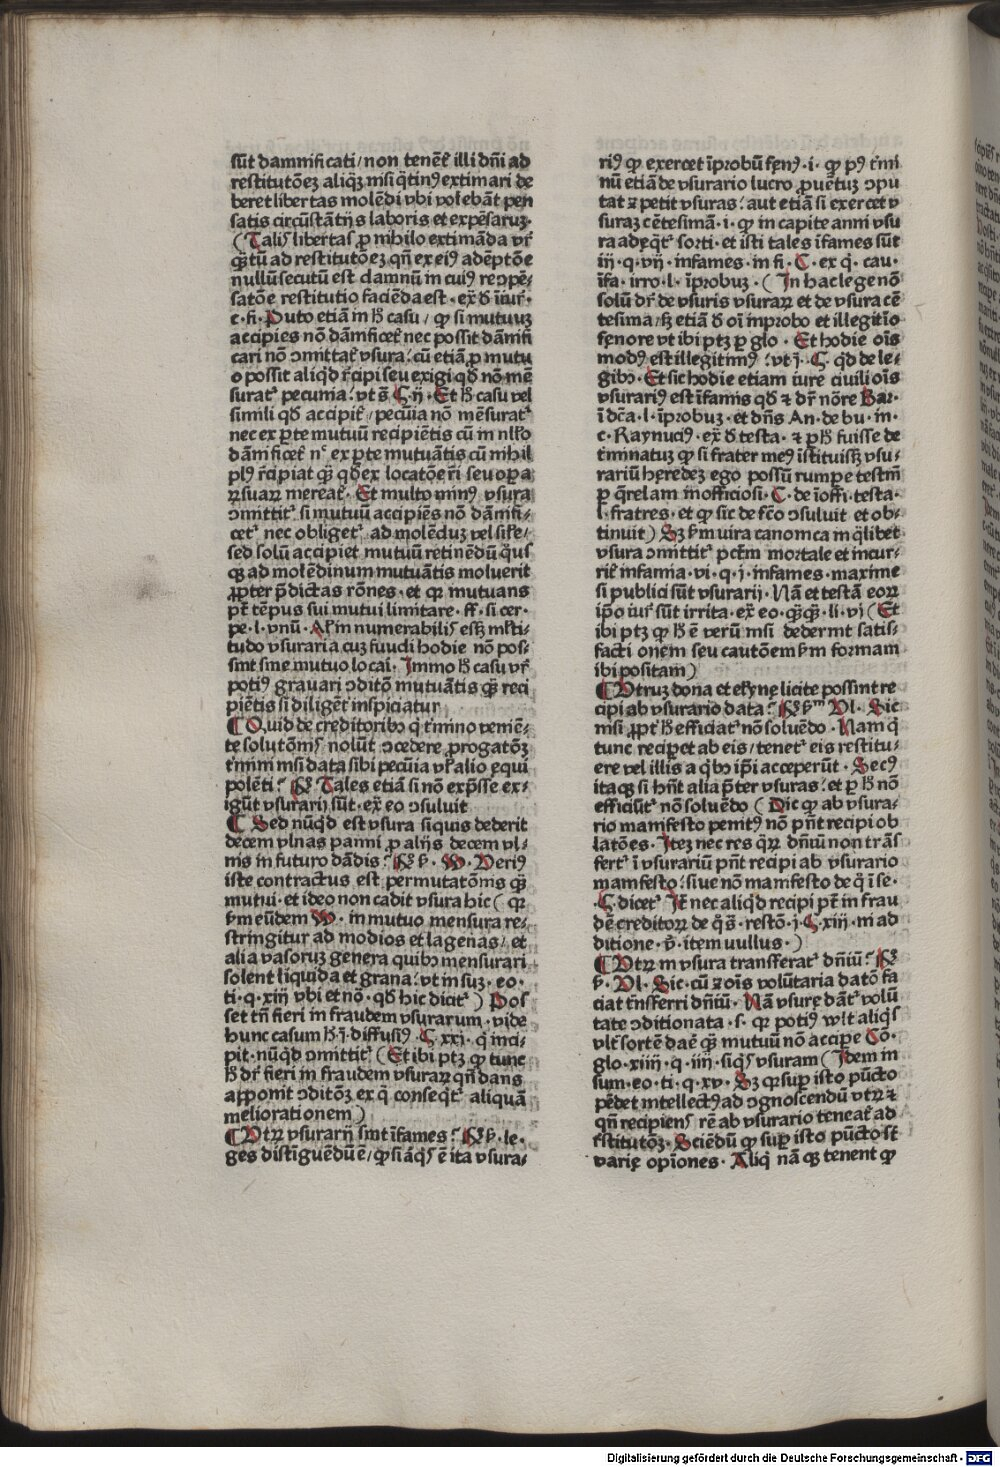 sūt damnificati/non tenēt̉ illi dn̄i ad
restitutōeꝫ aliqͣꝫ nisi q̄tin⁹ extimari de
beret libertas molēdi vbi volebāt pen
satis circūstātijs laboris et expēsaruꝫ·
(Talis libertas ꝓ nihilo extimāda vr̄
qͣꝫtū ad restitutōeꝫ qn̄ ex ei⁹ adēptōe
nullū secutū est damnū in cui⁹ recōpē-
satōe restitutio faciēda est· ex̄ d̄ iniur̄·
c·fi·Puto etiā in h̄ casu/ꝙ si mutuuꝫ
accipies nō dāmficet̉ nec possit dāmfi
cari nō ꝯmittat̉ vsura/cū etiā ꝓ mutu
o possit aliqd̉ rcipi seu exigi qd̉ nō mē
surat̉ pecunia/vt s̄ C·ij·Et h̄ casu vel
simili qd̉ accipit̉/pecūia nō mēsurat̉
nec ex ꝑte mutuū recipiētis cū in nllo
dāmficet̉ nͨ ex ꝑte mutuātis cū nihil
pl⁹ rcipiat qͣꝫ qd̉ ex locatōe rei seu oꝑa
ꝝ suaꝝ mereat̉·Et multo min⁹ vsura
ꝯmittit̉ si mutuū accipiēs nō dāmfi-
cet̉ nec obliget̉ ad molēduꝫ vel sile/
sed solū accipiet mutuū retinēdū qͥ⁹
qꝫ ad molēdinum mutuātis moluerit
ꝓpter p̄dictas rōnes·et qꝛ mutuans
pt̄ tēpus sui mutui limitare·ff·si cer·
pe·l·vnū·Al̉ innumerabilis eēt mlti-
tudo vsuraria cuꝫ fundi hodie nō pos-
sint sine mutuo locai·Immo h̄ casu vr̄
poti⁹ grauari ꝯditō mutuātis qͣꝫ reci
piētis si diligēt̉ inspiciatur
¶Quid de creditoribꝰ q̄ tm̄ino veniē-
te solutōnis nolūt ꝯcedere prorogatōꝫ
tm̄ini nisi data sibi pecūia vl̉ alio equi
polēti? Rͦ Tales etiā si nō exp̄sse exi-
igūt vsurarij sūt·ex̄ eo ꝯsuluit
¶Sed nūqd̉ est vsura si quis dederit
decem vlnas panni ꝓ alijs decem vl-
nis in futuro dādis? Rͦ ẜm·W·Veri⁹
iste contractus est permutatōnis qͣꝫ
mutui·et ideo non cadit vsura hic(qꝛ
ẜm eūdem W·in mutuo mensura re-
stringitur ad modios et lagenas/et
alia vasoruꝫ genera quibꝰ mensurari
solent liquida et grana/vt in suꝫ·eo·
ti·q·xiij vbi et nō·qd̉ hic dicit̉)Pos
set tn̄ fieri in fraudem vsurarum·vide
hunc casum h̄ j̄·diffusi⁹·C·xxj·q̄ inci-
pit·nūqd̉ ꝯmittit̉(Et ibi ptꝫ ꝙ tunc
h̄ dr̄ fieri in fraudem vsuraꝝ qn̄ dans
apponit ꝯditōꝫ ex q̄ conseqt̉ aliquā
meliorationem)
¶Vtꝝ vsurarij sint īfames? Rͦ ẜm·le-
ges distīguēdū ē/ꝙ si āqͥs ē ita vsura/
ri⁹ ꝙ exercet īprobū fen⁹·i·ꝙ p⁹ tm̄i
nū etiā de vsurario lucro ꝓuētuꝫ ꝯpu
tat ⁊ petit vsuras/aut etiā si exercet v
suraꝫ cētesimā·i·ꝙ in capite anni vsu
ra adeqt̉ sorti·et isti tales īfames sūt
iij·q·vij·infames·in fi·C·ex q̄·cau·
īfa·irro·l·īprobuꝫ·(In hac lege nō
solū dr̄ de vsuris vsuraꝝ et de vsura cē
tesima/sꝫ etiā d̄ oī improbo et illegitīo
fenore vt ibi ptꝫ ꝑ glo·Et hodie oīs
mod⁹ est illegitim⁹/vt j̄·C·qd̉ de le-
gibꝰ·Et sic hodie etiam iure ciuili oīs
vsurari⁹ est īfamis qd̉ ⁊ dr̄ nōre Bar·
ī dc̄a·l·īprobuꝫ·et dn̄s An·de bu·in·
c·Raynuci⁹·ex̄ d̄ testa·⁊ ꝑ h̄ fuisse de
tm̄inatuꝫ ꝙ si frater me⁹ īstituissꝫ vsu-
rariū heredeꝫ ego possū rumpe testm̄
ꝑ q̄relam inofficiosi·C·de īoffi·testa·
l·fratres·et ꝙ sic de fc̄o ꝯsuluit et ob-
tinuit)Sꝫ ẜm iura canonica in qͣlibet
vsura ꝯmittit̉ pctm̄ mortale et incur-
rit̉ infamia·vi·q·j·infames·maxime
si publici sūt vsurarij·Nā et testā eoꝝ
ipō iur̄ sūt irrita·ex̄ eo·qͣꝫqͣꝫ·li·vj(Et
ibi ptꝫ ꝙ h̄ ē verū nisi dederint satis-
facti onem seu cautōem ẜm formam
ibi positam)
¶Vtruꝫ dona et elynē licite possint re
cipi ab vsurario data? Rͦ ẜm Vl·Sic
nisi ꝓpt̉ h̄ efficiat̉ nō soluēdo·Nam q̄
tunc recipet ab eis/tenet̉ eis restitu-
ere vel illis a qͥbꝰ ipi acceperūt·Sec⁹
itaqꝫ si hn̄t alia p̄ter vsuras/et ꝑ h̄ nō
efficiūt̉ nō soluēdo(Dic ꝙ ab vsura-
rio manifesto penit⁹ nō pn̄t recipi ob
latōes·Iteꝫ nec res qͣꝝ dn̄iū non trās
fert̉ ī vsurariū pn̄t recipi ab vsurario
manifesto/siue nō manifesto de q̄ ī se·
·C·dicet̉ It̄ nec aliqd̉ recipi pt̄ in frau
dē creditoꝝ de q̄ s̄·restō·j·C·xiij·in ad
ditione·ꝟ·item nullus·)
¶Vtꝝ in vsura transferat̉ dn̄iū? Rͦ
ẜm·Vl·Sic·cū ⁊ oīs volūtaria datō fa
ciat tn̄sferri dn̄iū·Nā vsure dāt̉ volū
tate ꝯditionata·s·qꝛ poti⁹ vult aliqͥs
vlt̉ sortē dae qͣꝫ mutuū nō accipe Cō·
glo·xiiij·q·iiij·siqͥs vsuram(Idem in
sum·eo·ti·q·xv·Sꝫ qꝛ suꝑ isto pūcto
pēdet intellect⁹ ad ꝯgnoscendū vtꝝ ⁊
qn̄ recipiens rē ab vsurario teneat̉ ad
rstitutōꝫ·Sciēdū ꝙ suꝑ isto pūcto st̄
varie opiōnes·Aliqͥ nāqꝫ tenent ꝙ
Digitalisierung gefördert durch die Deutsche Forschungsgemeinschaft - DFG